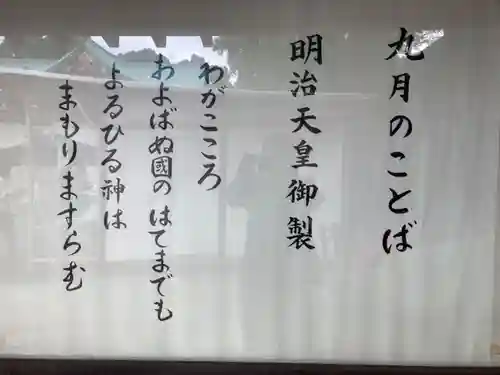 九月のことば
明治天皇御製
わがこころ
およばぬ國のはてまでも
よるひる神は
まもりますらむ